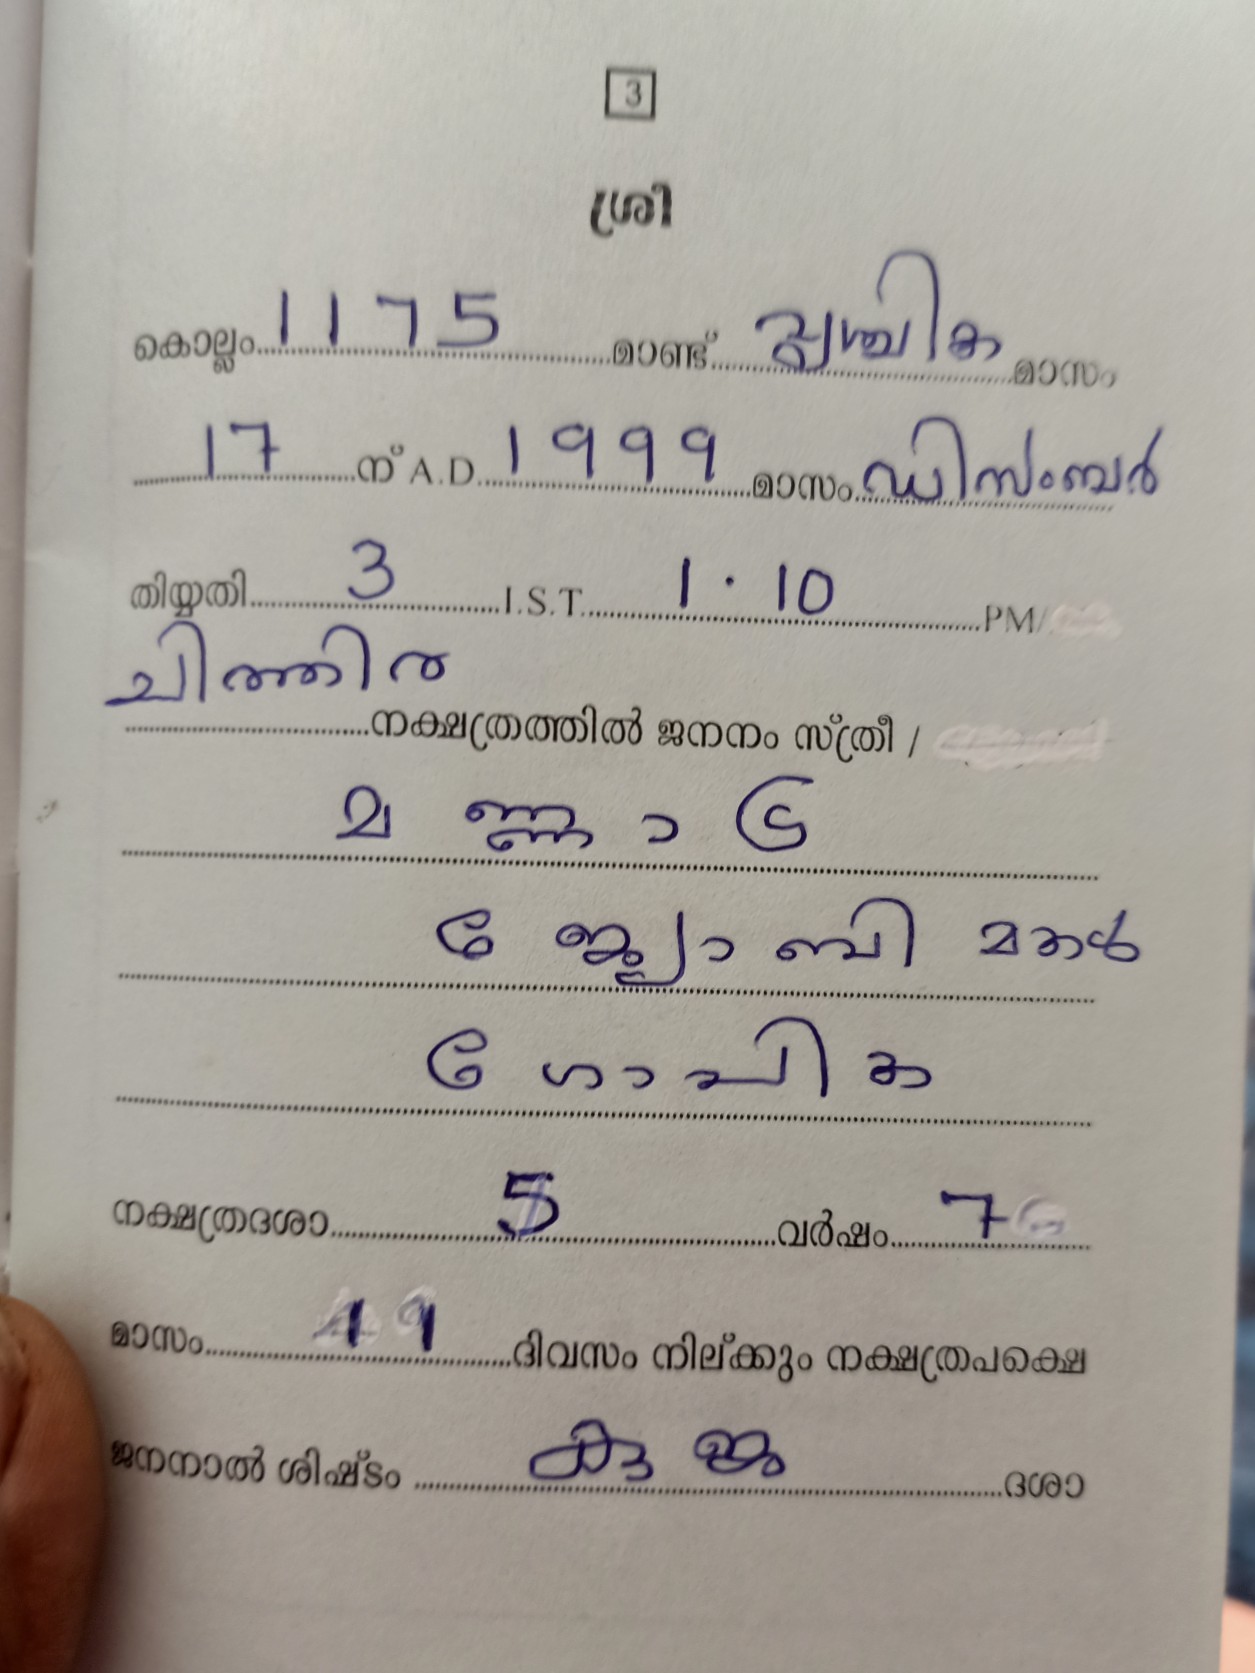 3
ശ്രീ
കൊല്ലം 1175 മാണ്ട് വൃശ്ചിക മാസം
17 ന് A.D. 1999 മാസം ഡിസംബർ
തിയ്യതി 3 I.S.T. 1.10 PM/
ചിത്തിര
നക്ഷത്രത്തിൽ ജനനം സ്ത്രീ /
മണ്ണാ
മകൾ
ഗോപിക
നക്ഷത്രദശാ 5 വർഷം 7
മാസം 11 ദിവസം നില്ക്കും നക്ഷത്രപക്ഷെ
ജനനാൽ ശിഷ്ടം കുജ ദശാ